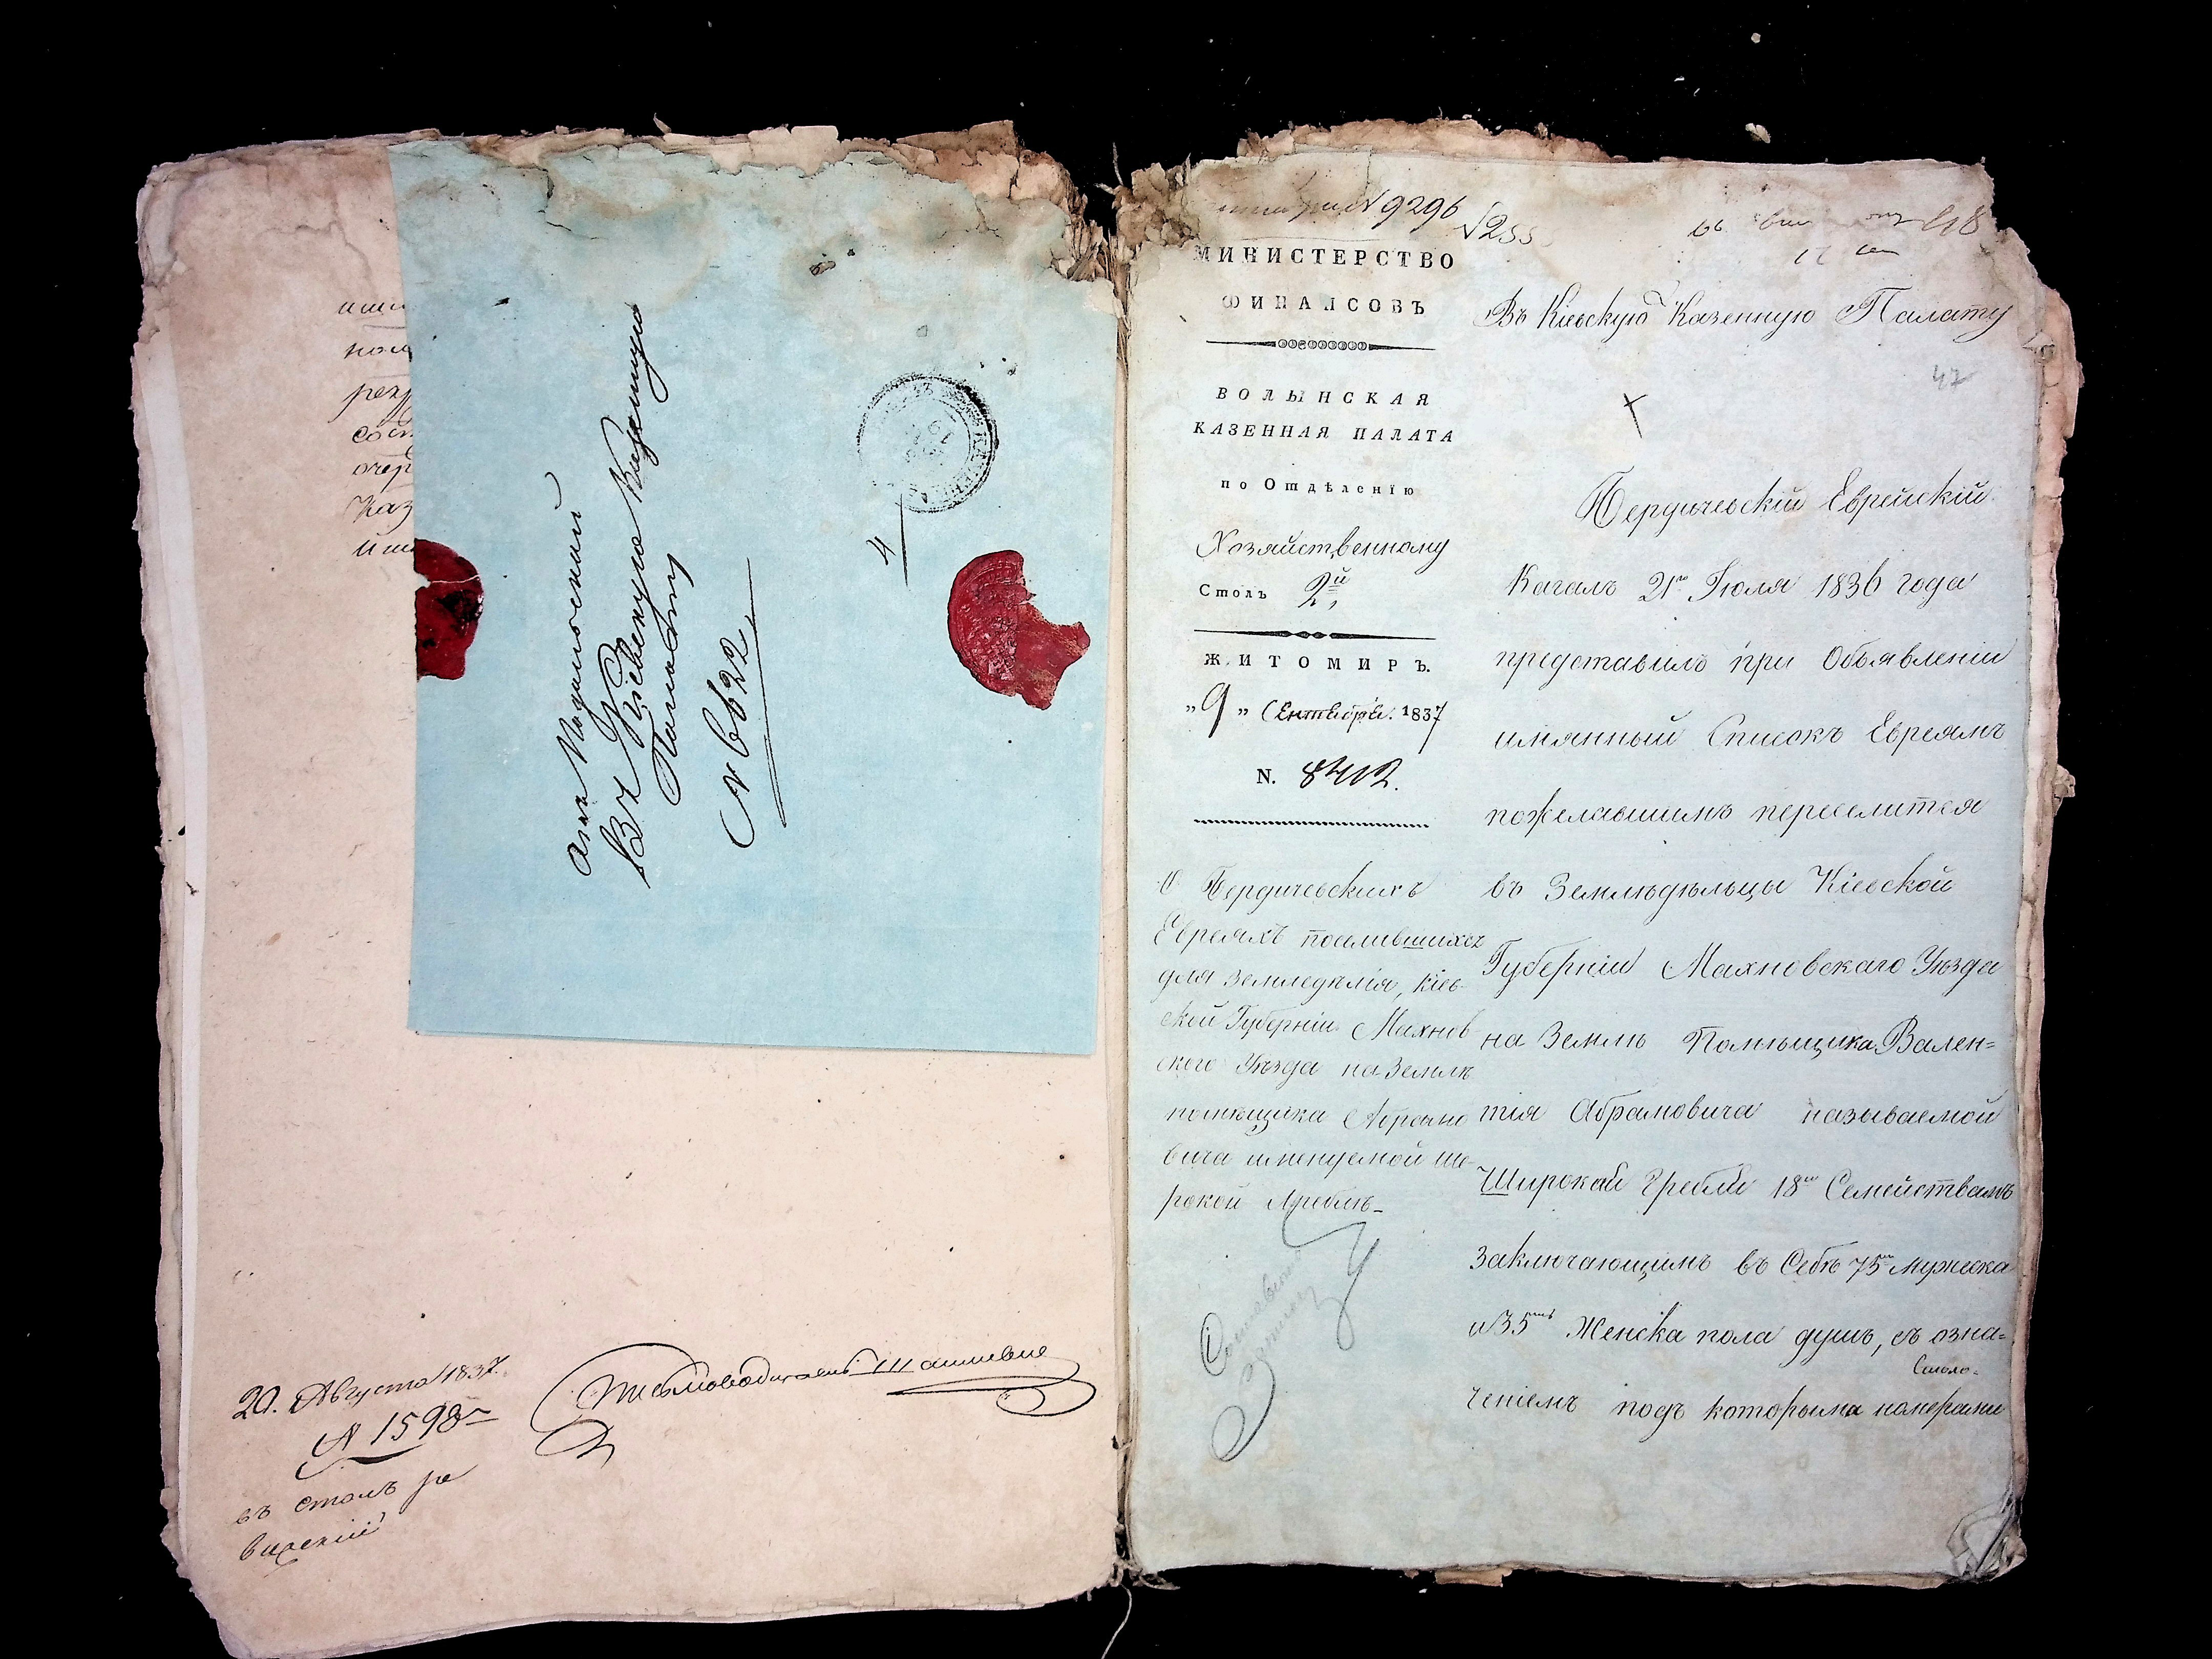 20. Августа 1837.
№ 1598
въ столъ ре
визскій
Въ Кіевскую Казенную
Палату
№ 6622
4
9296
МИНИСТЕРСТВО
ФИНАНСОВЪ
ВОЛЫНСКАЯ
КАЗЕННАЯ ПАЛАТА
по Отдѣленію
Хозяйственному
Столъ 2й
ЖИТОМИРЪ.
"9" Сентября. 1837
N. 8402.
О Бердичевскихъ
Евреяхъ поселившихся
для земледѣлія, Кіев-
ской Губерніи Махнов
ского Уѣзда на землѣ
помѣщика Абрамо
вича именуемой Ши-
рокой Греблѣ
Въ Кіевскую Казенную Палату
47
Бердичевскій Еврейскій
Кагалъ 21го Іюля 1836 года
представилъ при Объявленіи
имянный Списокъ Евреямъ
пожелавшимъ переселится
въ Земледѣльцы Кіевской
Губерніи Махновскаго Уѣзда
на Землѣ Помѣщика Вален=
тія Абрамовича называемой
Широкой Гребли 18ти Семействамъ
заключающимъ въ Себѣ 75ть мужеска
и 35ть Женска пола душъ, съ озна=
ченіемъ подъ которыми номерами